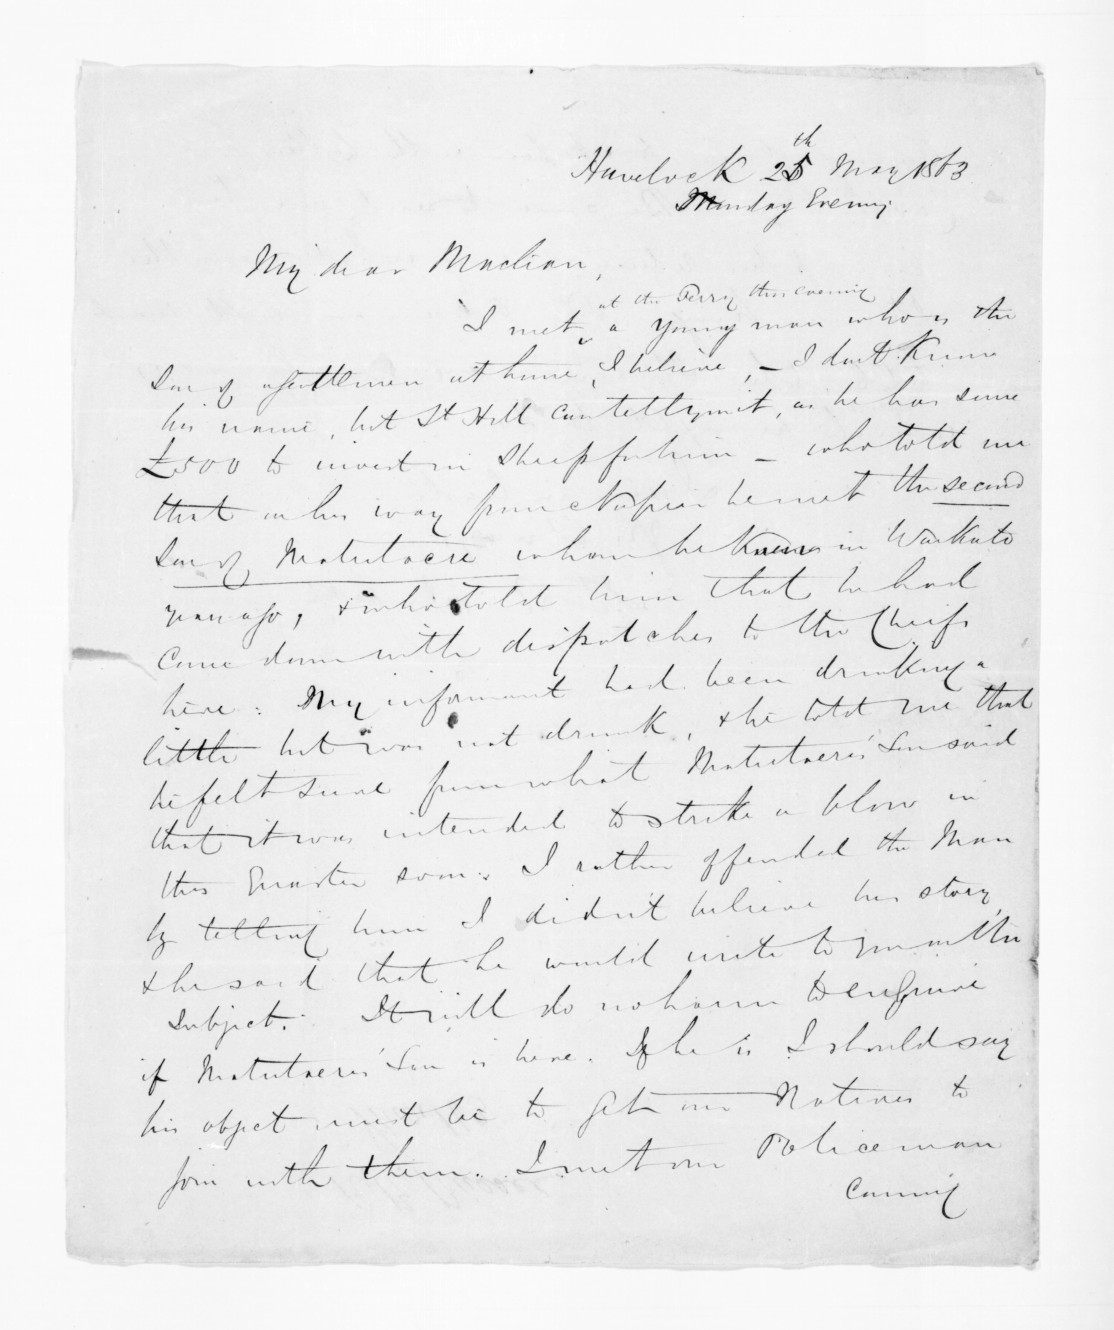 Havelock 25th May 1863
Monday Evening
My dear Maclean,
at the Ferry this evening
I met a young man who is the
Son of a Gentleman at home, I believe, – I don't know
his name, but St Hill can tell you it, as he has some
£500 to invest in Sheep for him – who told me
that on his way from Napier he met the second
Son of Matutaere whom he knew in Waikato
years ago, & who told him that he had
come down with dispatches to the Chiefs
here. My informant had been drinking a
little but was not drunk, & he told me that
he felt sure from what Matutaere's Son said
that it was intended to strike a blow in
this Quarter soon. I rather offended the Man
by telling him I didn't believe his story,
& he said that he would write to you on the
Subject. It will do no harm to enquire
if Matutaere's Son is here. If he is I should say
his object must be to get our Natives to
join with them. I met our Policeman
coming